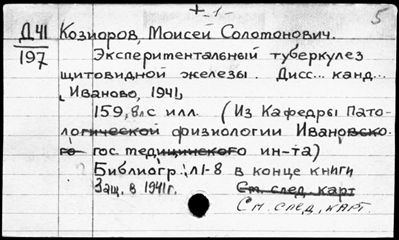 + -1- 5
Д41 Козиоров, Моисей Соломонович.
197 Экспериментальный туберкулез
щитовидной железы. Дисс... канд...
Иваново, 1941,
159, 8 лс илл. (Из Кафедры Пато-
логической физиологии Ивановско-
го гос. медицинского ин-та)
Библиогр. л1-8 в конце книги
Защ. в 1941г. См. след. карт
См. след. карт.